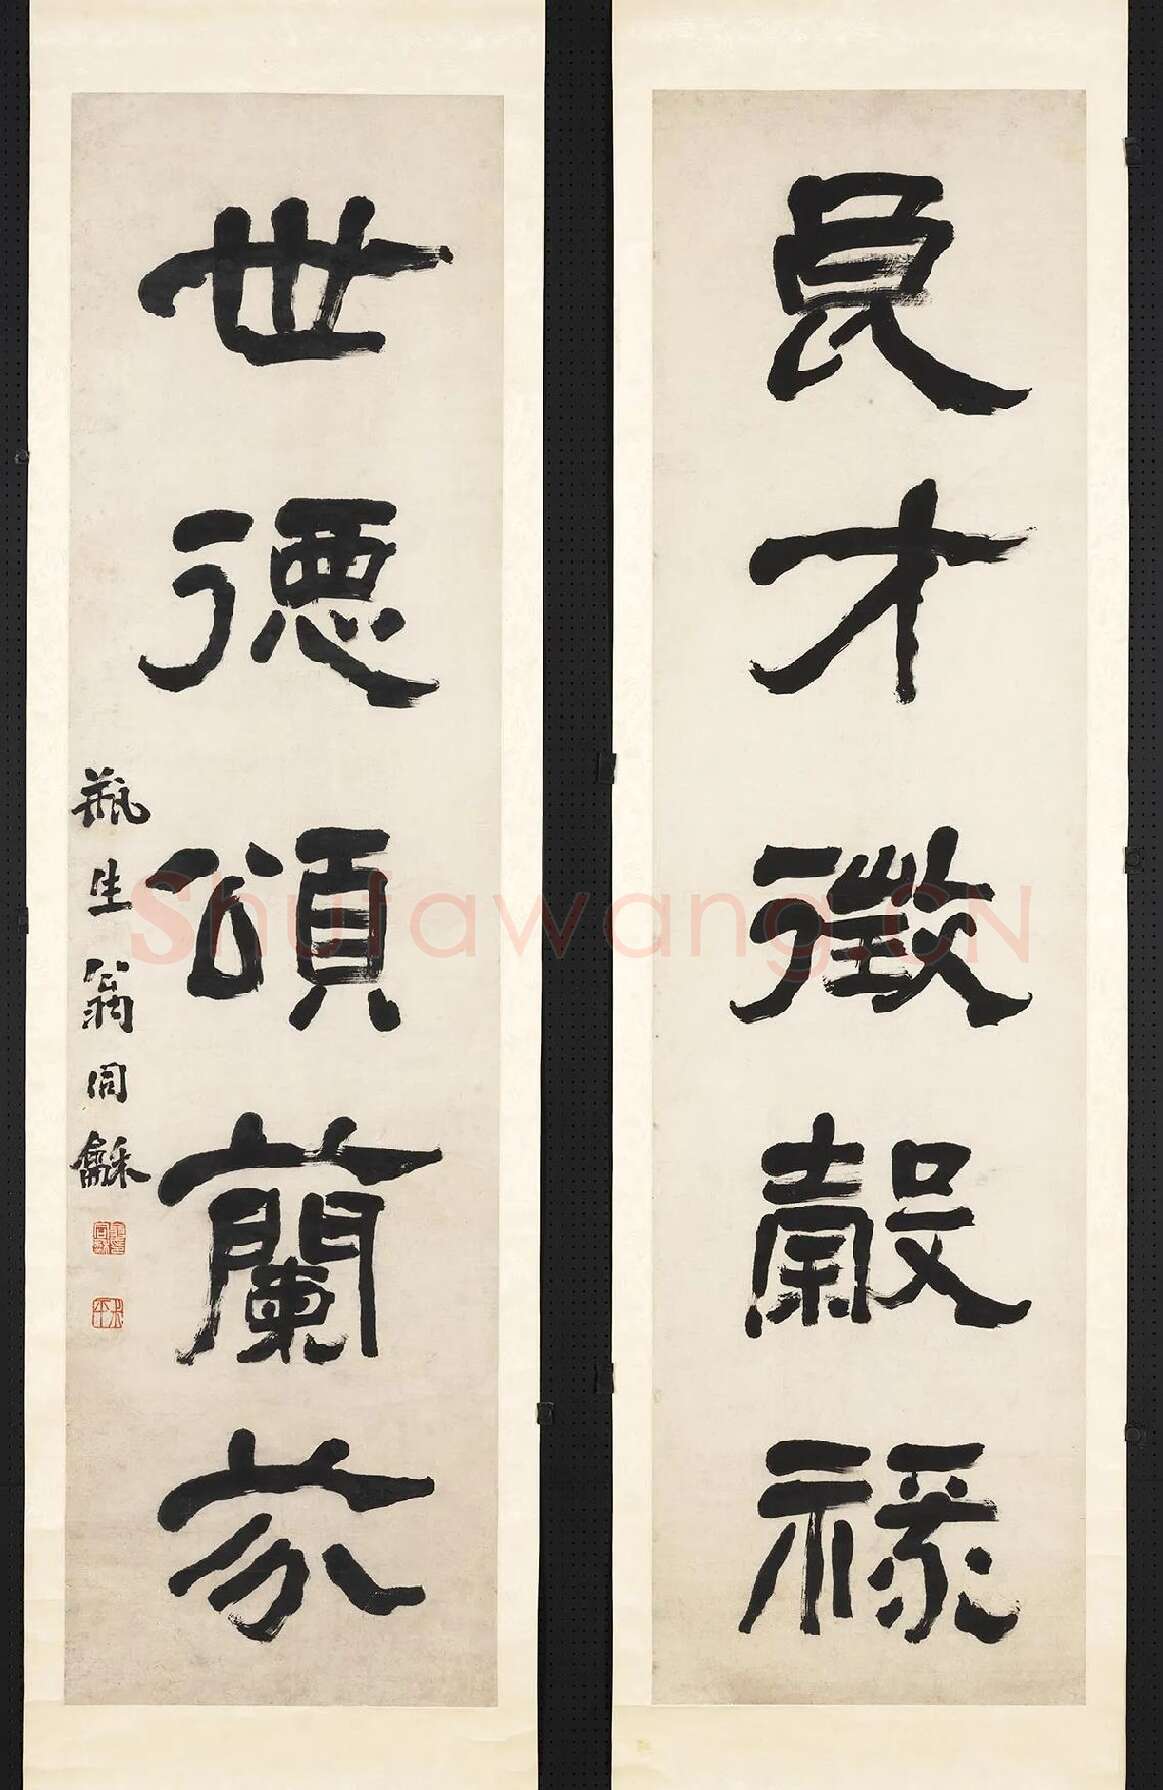 良才徵穀祿
世德頌蘭芬
瓶生翁同龢
Shufawang.CN